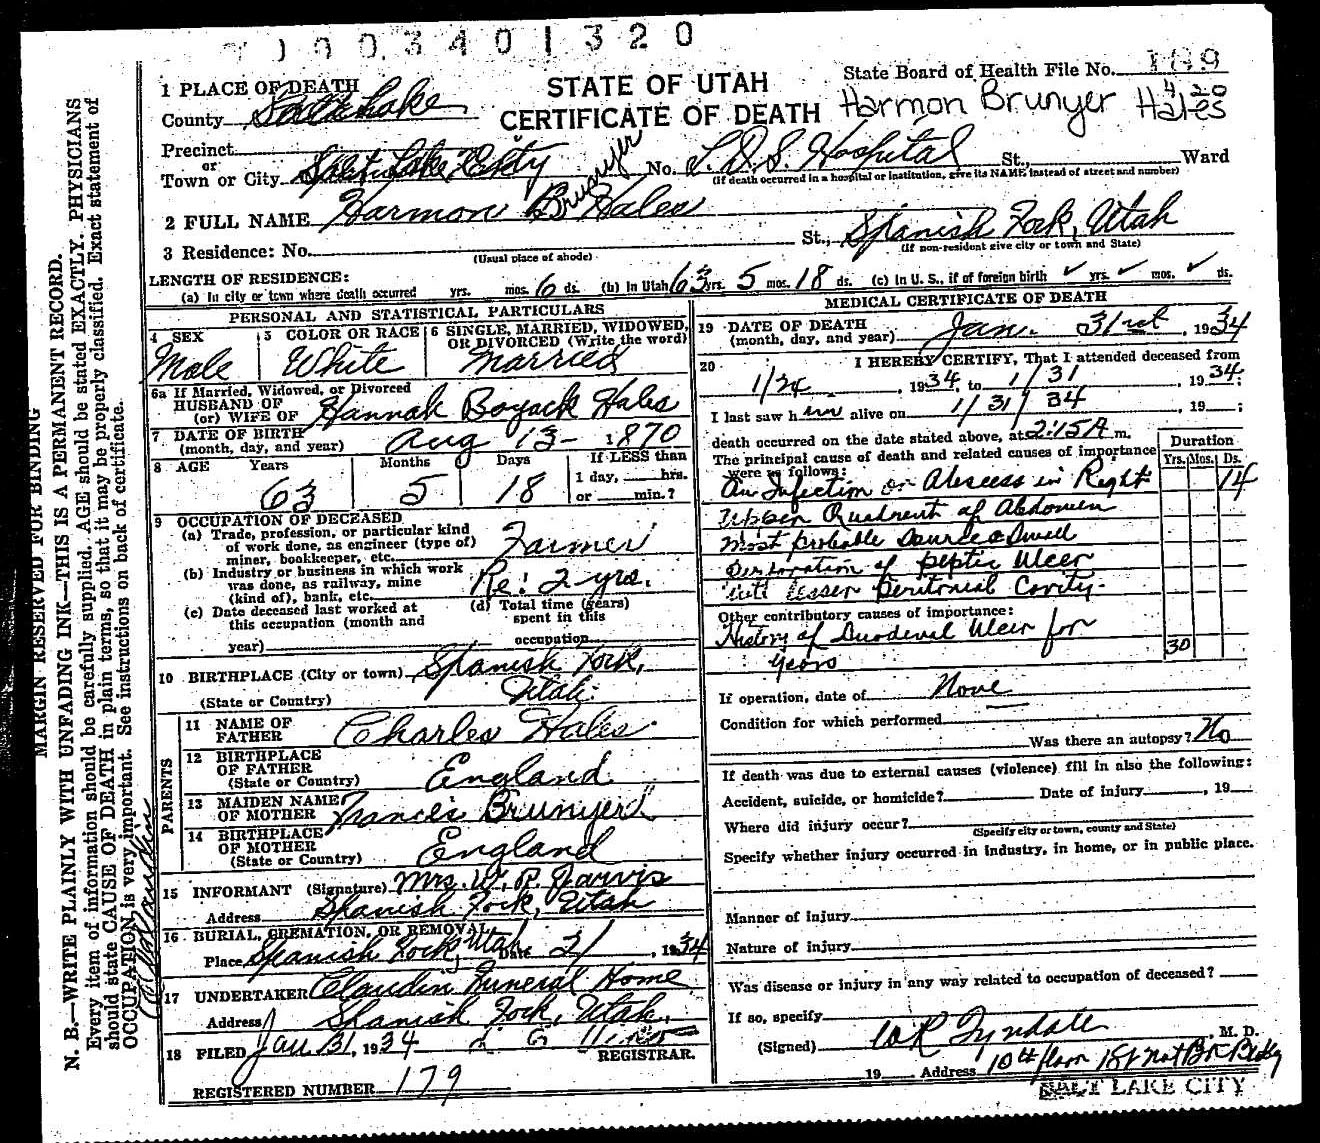 0 0 3 4 0 1 3 2 0
STATE OF UTAH
CERTIFICATE OF DEATH
State Board of Health File No. 189
Harmon Brunyer Hales
4 20
1 PLACE OF DEATH
County Salt Lake
Precinct
or
Town or City Salt Lake City No. L. D. S. Hospital St., Ward
(If death occurred in a hospital or institution, give its NAME instead of street and number)
Brunyer
2 FULL NAME Harmon B Hales
3 Residence: No. St., Spanish Fork, Utah
(Usual place of abode)
(If non-resident give city or town and State)
LENGTH OF RESIDENCE:
(a) In city or town where death occurred yrs. mos. 6 ds. (b) In Utah 63 yrs. 5 mos. 18 ds. (c) In U. S., if of foreign birth ✓ yrs. ✓ mos. ✓ ds.
PERSONAL AND STATISTICAL PARTICULARS
4 SEX
Male
5 COLOR OR RACE
White
6 SINGLE, MARRIED, WIDOWED,
OR DIVORCED (Write the word)
Married
6a If Married, Widowed, or Divorced
HUSBAND OF
(or) WIFE OF Hannah Boyack Hales
7 DATE OF BIRTH
(month, day, and year) Aug 13 - 1870
8 AGE Years Months Days If LESS than
63 5 18 1 day, hrs.
or min.?
9 OCCUPATION OF DECEASED
(a) Trade, profession, or particular kind
of work done, as engineer (type of)
miner, bookkeeper, etc. Farmer
(b) Industry or business in which work
was done, as railway, mine
(kind of), bank, etc. Re: 2 yrs.
(c) Date deceased last worked at
this occupation (month and
year)
(d) Total time (years)
spent in this
occupation
10 BIRTHPLACE (City or town) Spanish Fork,
(State or Country) Utah.
PARENTS
11 NAME OF
FATHER Charles Hales.
12 BIRTHPLACE
OF FATHER
(State or Country) England.
13 MAIDEN NAME
OF MOTHER Frances Brunyer
14 BIRTHPLACE
OF MOTHER
(State or Country) England
15 INFORMANT (Signature) Mrs. W. P. Jarvis
Address Spanish Fork, Utah
16 BURIAL, CREMATION, OR REMOVAL
Place Spanish Fork, Utah Date 2/ , 1934
17 UNDERTAKER Claudin Funeral Home
Address Spanish Fork, Utah.
18 FILED Jan 31, 1934
REGISTRAR.
REGISTERED NUMBER 179
MEDICAL CERTIFICATE OF DEATH
19 DATE OF DEATH
(month, day, and year) Jan. 31st , 1934
20 I HEREBY CERTIFY, That I attended deceased from
1/24 , 1934, to 1/31 , 1934;
I last saw him alive on 1/31/34 , 19 ;
death occurred on the date stated above, at 2:15A m.
The principal cause of death and related causes of importance
were as follows:
Duration
Yrs. Mos. Ds.
An Infection or Abscess in Right 14
Upper Quadrant of Abdomen
Most probable Source a Small
Perforation of peptic Ulcer
into Lesser Peritonial Cavity.
Other contributory causes of importance:
History of Duodenal Ulcer for
years 30
If operation, date of None
Condition for which performed
Was there an autopsy? No
If death was due to external causes (violence) fill in also the following:
Accident, suicide, or homicide? Date of injury , 19
Where did injury occur?
(Specify city or town, county and State)
Specify whether injury occurred in industry, in home, or in public place.
Manner of injury
Nature of injury
Was disease or injury in any way related to occupation of deceased?
If so, specify
(Signed) W R Tyndale , M. D.
19 Address 10th floor 1st Nat Bk Bldg
SALT LAKE CITY
MARGIN RESERVED FOR BINDING
N. B.—WRITE PLAINLY WITH UNFADING INK—THIS IS A PERMANENT RECORD.
Every item of information should be carefully supplied. AGE should be stated EXACTLY. PHYSICIANS
should state CAUSE OF DEATH in plain terms, so that it may be properly classified. Exact statement of
OCCUPATION is very important. See instructions on back of certificate.